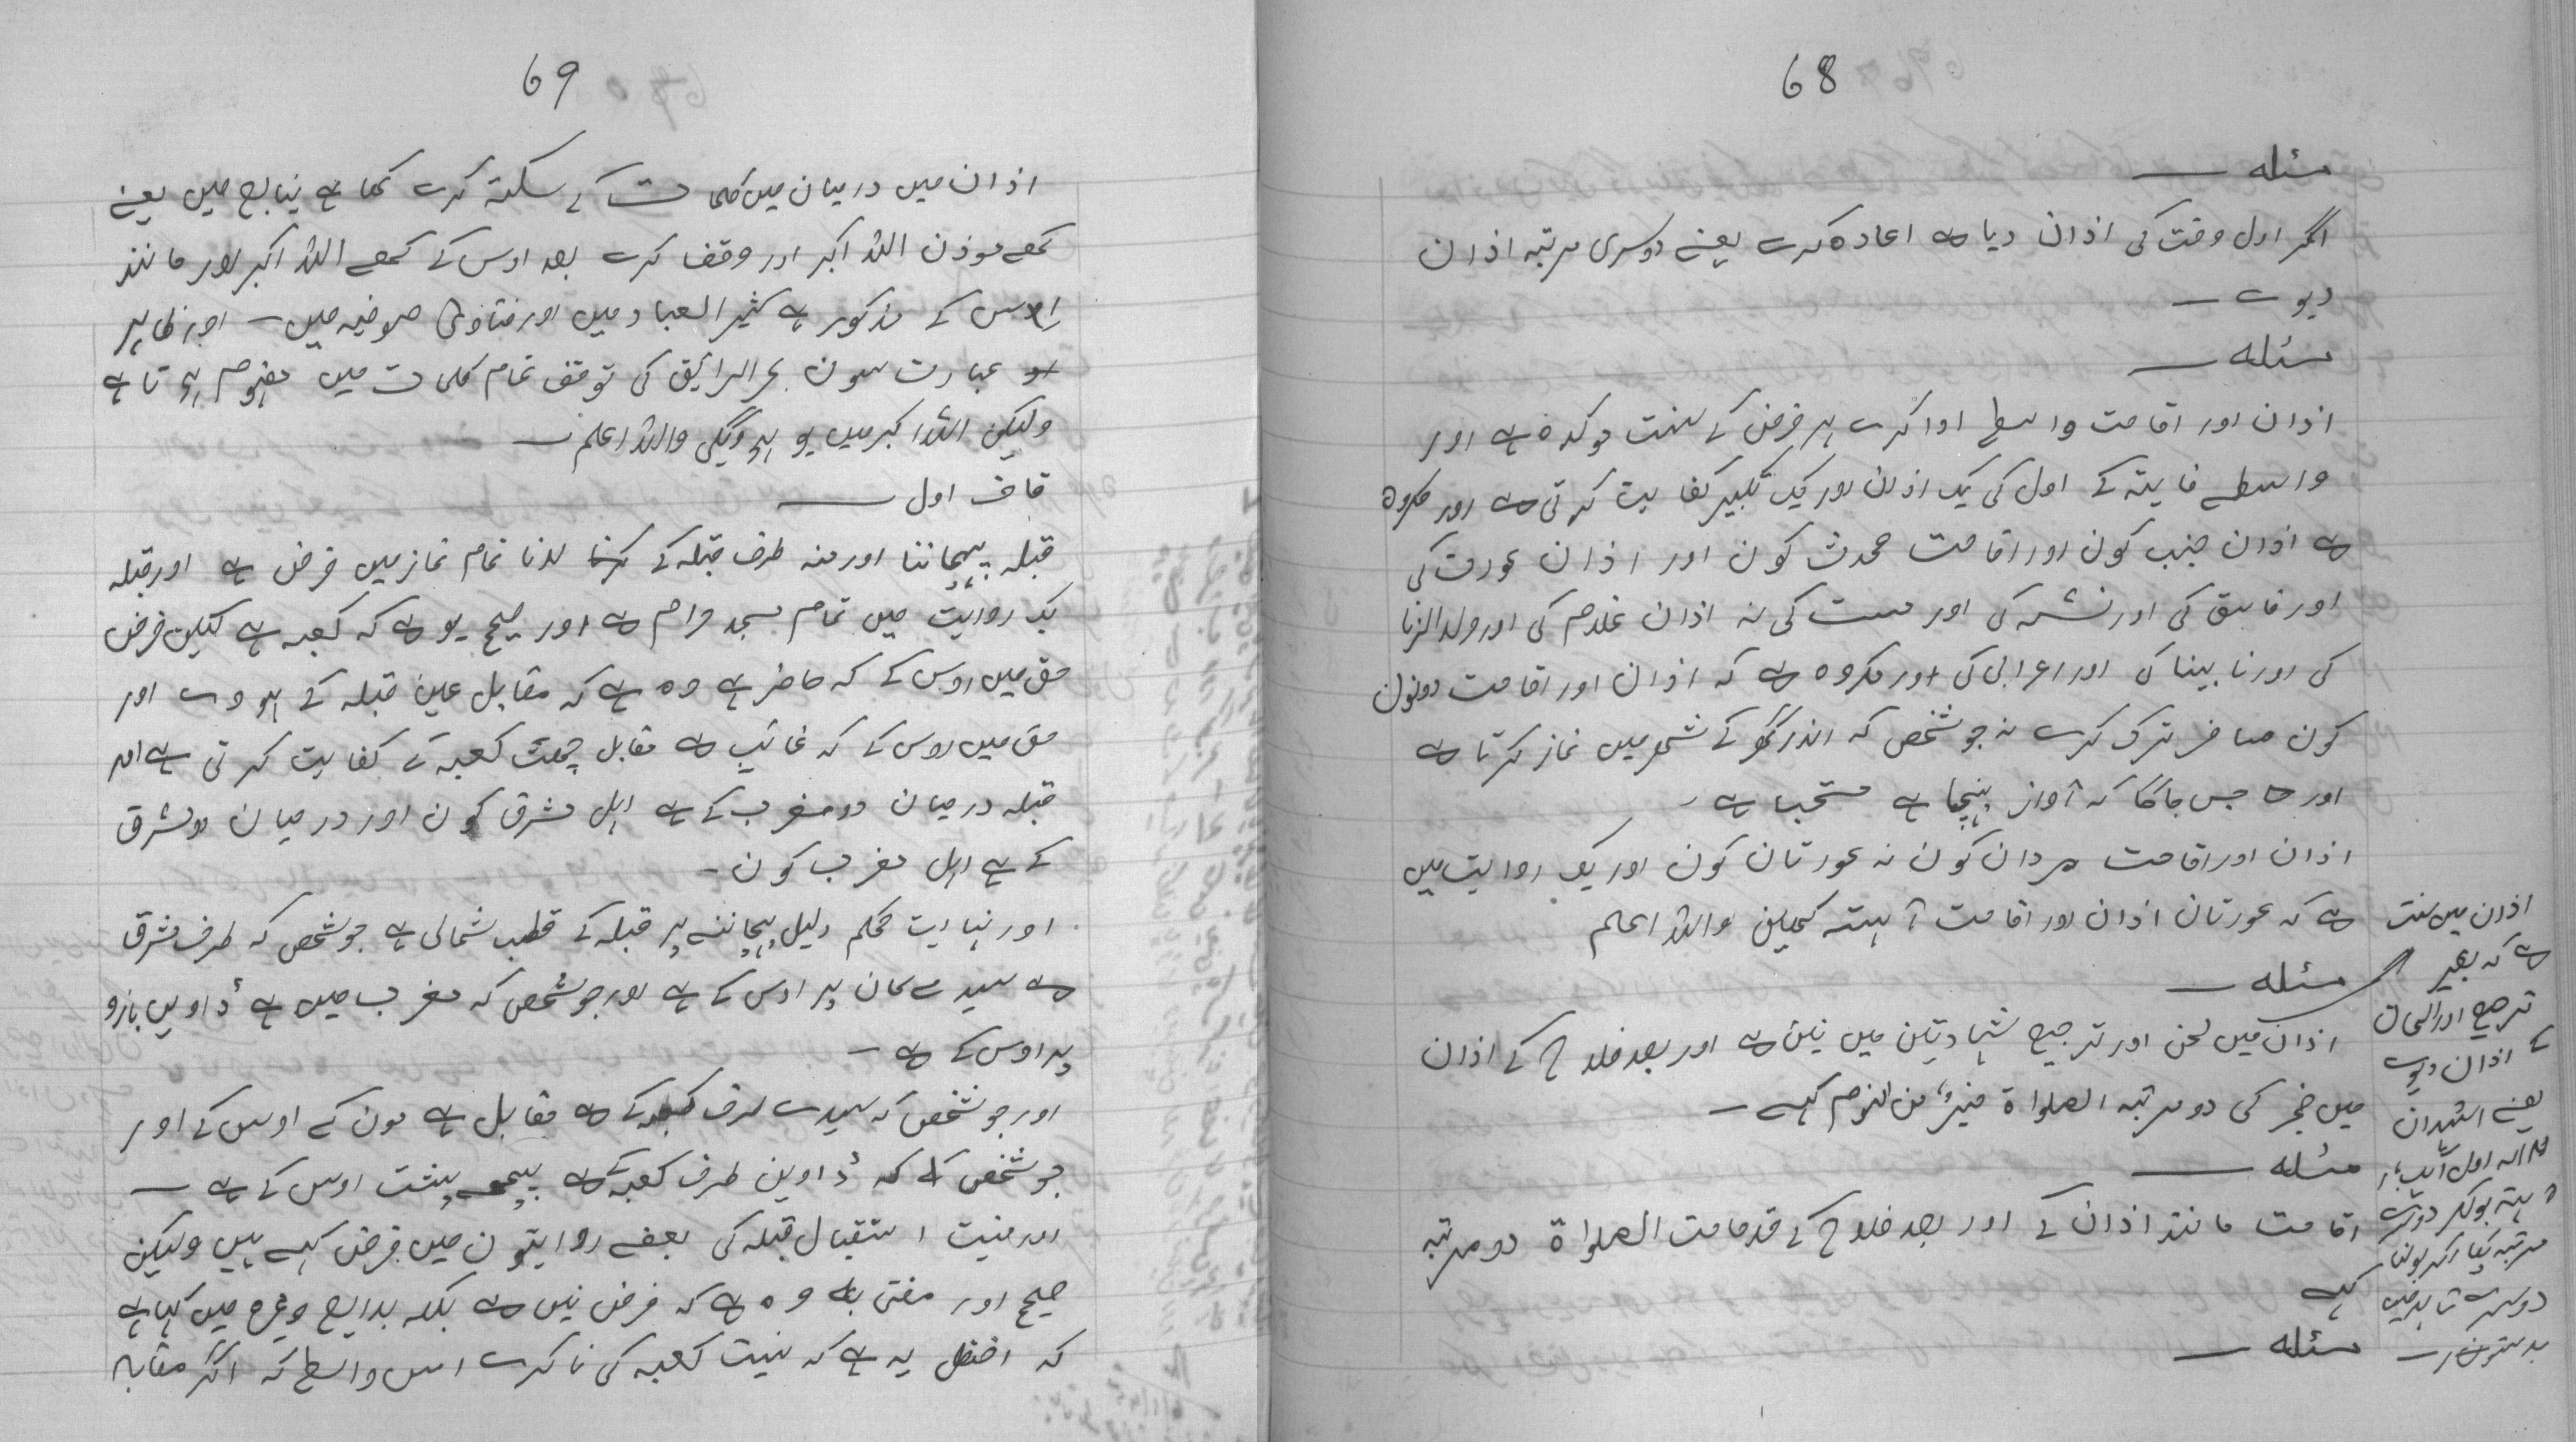 68
مسئلہ —
اگر اول وقت کی اذان دیا ہے اعادہ کرے یعنے دوسری مرتبہ اذان
دیوے —
مسئلہ —
اذان اور اقامت واسطے ادا کرے ہر فرض کے سنت موکدہ ہے اور
واسطے فایتہ کے اول کی یک اذان اور یک تکبیر کفایت کرتی ہے اور مکروہ
ہے اذان جنب کون اور اقامت محدث کون اور اذان عورت کی
اور فاسق کی اور نشہ کی اور مست کی نہ اذان غلام کی اور ولد الزنا
کی اور نابینا کی اور اعرابی کی اور مکروہ ہے کہ اذان اور اقامت دونون
کون مسافر ترک کرے نہ جو شخص کہ اندر گھر کے شھر میں نماز کرتا ہے
اور جس جاگا کہ آواز پہنچا ہے مستحبا ہے -
اذان اور اقامت مردان کون نہ عورتان کون اور یک روایت میں
ہے کہ عورتان اذان اور اقامت آہستہ کہیں واللہ اعلم
مسئلہ —
اذان میں لحن اور ترجیح شہادتین میں نیئں ہے اور بعد فلاح کے اذان
میں فجر کی دو مرتبہ الصلواۃ خیرٌ من النوم کہے —
مسئلہ —
اقامت مانند اذان کے اور بعد فلاح کے قد قامت الصلواۃ دو مرتبہ
کہے
مسئلہ —
اذان میں سنت
ہے کہ بغیر
ترجیح اور الحان
کے اذان دیوے
یعنے اشہدان
آہستہ بولکر دوسرے
مرتبہ پکار کر بولنا
69
اذان میں درمیان میں کلمات کے سکتہ کرے کہا ہے ینابع میں یعنے
کہے موذن اللہ اکبر اور وقف کرے بعد اوس کے کہے اللہ اکبر اور مانند
اوس کے مذکور ہے کثیر العباد میں اور فتاوی صوفیہ میں — اور ظاہر
عبارت سون بحر الرائیق کی توقف تمام کلمات میں مفہوم ہوتا ہے
ولیکن اللہ اکبر میں یو ہوویگی واللہ اعلم —
قاف اول —
قبلہ پہچاننا اور منہ طرف قبلہ کے کرنا تمام نماز میں فرض ہے اور قبلہ
یک روایت میں تمام مسجد حرام ہے اور صحیح یو ہے کہ کعبہ ہے لیکن فرض
حق میں اوس کے کہ حاضر ہے وہ ہے کہ مقابل عین قبلہ کے ہووے اور
حق میں اوس کے کہ غائب ہے مقابل جھت کعبہ کے کفایت کرتی ہے اور
قبلہ درمیان دو مغرب کے ہے اہل مشرق کون اور درمیان دو مشرق
کے ہے اہل مغرب کون -
اور نہایت محکم دلیل پہچاننے پر قبلہ کے قطب شمالی ہے جو شخص کہ طرف مشرق
ہے سیدے کان پر اوس کے ہے اور جو شخص کہ مغرب میں ہے ڈاویں بازو
پر اوس کے ہے —
اور جو شخص کہ سیدے طرف کعبہ کے ہے مقابل ہے مون کے اوس کے اور
جو شخص کہ ڈاوین طرف کعبہ کے ہے پیچھے پشت اوس کے ہے —
اور نیت استقبال قبلہ کی بعضے روایتون میں فرض کہے ہیں ولیکن
صحیح اور مفتی بہ وہ ہے کہ فرض نیں ہے بلکہ بدایع وغیرہ میں کہا ہے
کہ افضل یہ ہے کہ نیت کعبہ کی نا کرے اس واسطے کہ اگر مقابہ